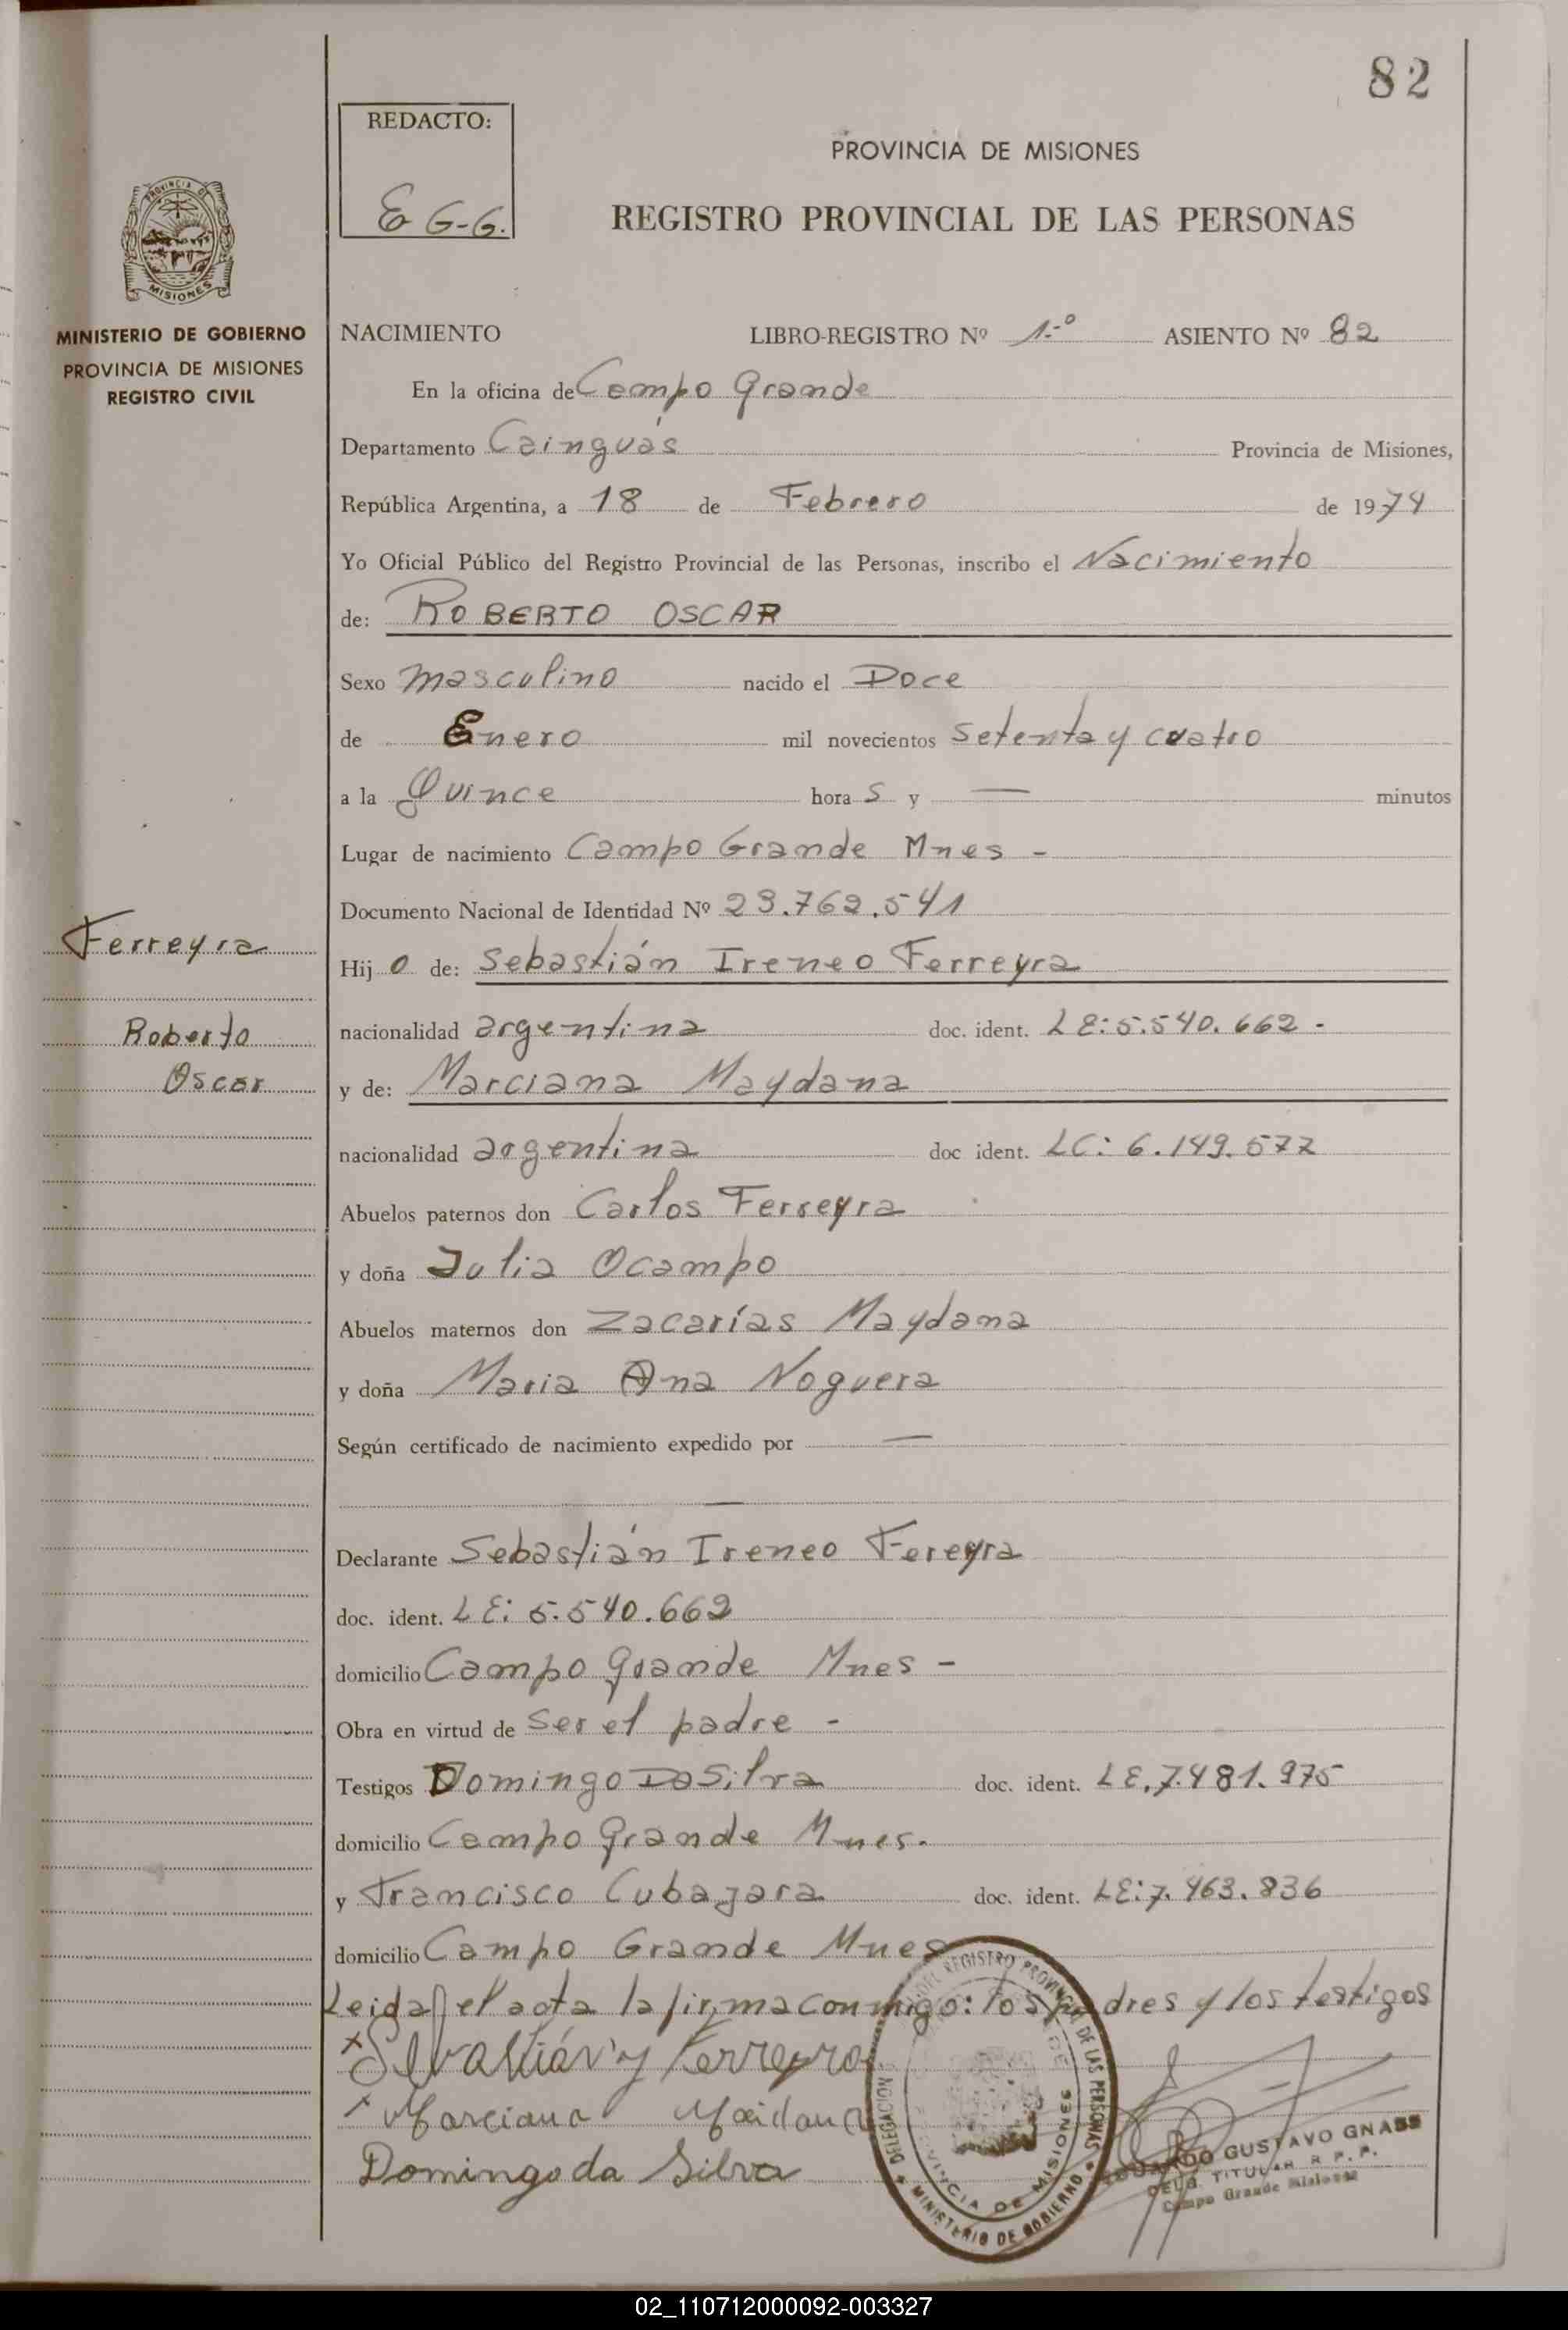 82
REDACTO:
E G-G.
PROVINCIA DE MISIONES
REGISTRO PROVINCIAL DE LAS PERSONAS
PROVINCIA DE
MISIONES
MINISTERIO DE GOBIERNO
PROVINCIA DE MISIONES
REGISTRO CIVIL
NACIMIENTO LIBRO-REGISTRO Nº 1.-º ASIENTO Nº 82
En la oficina de Campo Grande
Departamento Cainguás Provincia de Misiones,
República Argentina, a 18 de Febrero de 1974
Yo Oficial Público del Registro Provincial de las Personas, inscribo el Nacimiento
de: ROBERTO OSCAR
Sexo masculino nacido el Doce
de Enero mil novecientos setenta y cuatro
a la Quince hora s y — minutos
Lugar de nacimiento Campo Grande Mnes -
Documento Nacional de Identidad Nº 23.762.541
Ferreyra
Roberto
Oscar
Hij o de: Sebastián Ireneo Ferreyra
nacionalidad argentina doc. ident. LE: 5.540.662 -
y de: Marciana Maydana
nacionalidad argentina doc ident. LC: 6.149.577
Abuelos paternos don Carlos Ferreyra
y doña Julia Ocampo
Abuelos maternos don Zacarías Maydana
y doña Maria Ana Noguera
Según certificado de nacimiento expedido por —
—
Declarante Sebastián Ireneo Fereyra
doc. ident. LE: 5.540.662
domicilio Campo Grande Mnes -
Obra en virtud de ser el padre -
Testigos Domingo Da Silva doc. ident. LE. 7.481.975
domicilio Campo Grande Mnes.
y Francisco Cubazara doc. ident. LE: 7.463.836
domicilio Campo Grande Mnes
Leida el acta la firma conmigo: los padres y los testigos
x Selvastián y Ferreyra
x Marciana Maidana
Domingo da Silva
DELEGACION DEL REGISTRO PROVINCIAL DE LAS PERSONAS
MINISTERIO DE GOBIERNO
PROVINCIA DE MISIONES
EDUARDO GUSTAVO GNASS
DELEG. TITULAR R. P. P.
Campo Grande Misiones
02_110712000092-003327